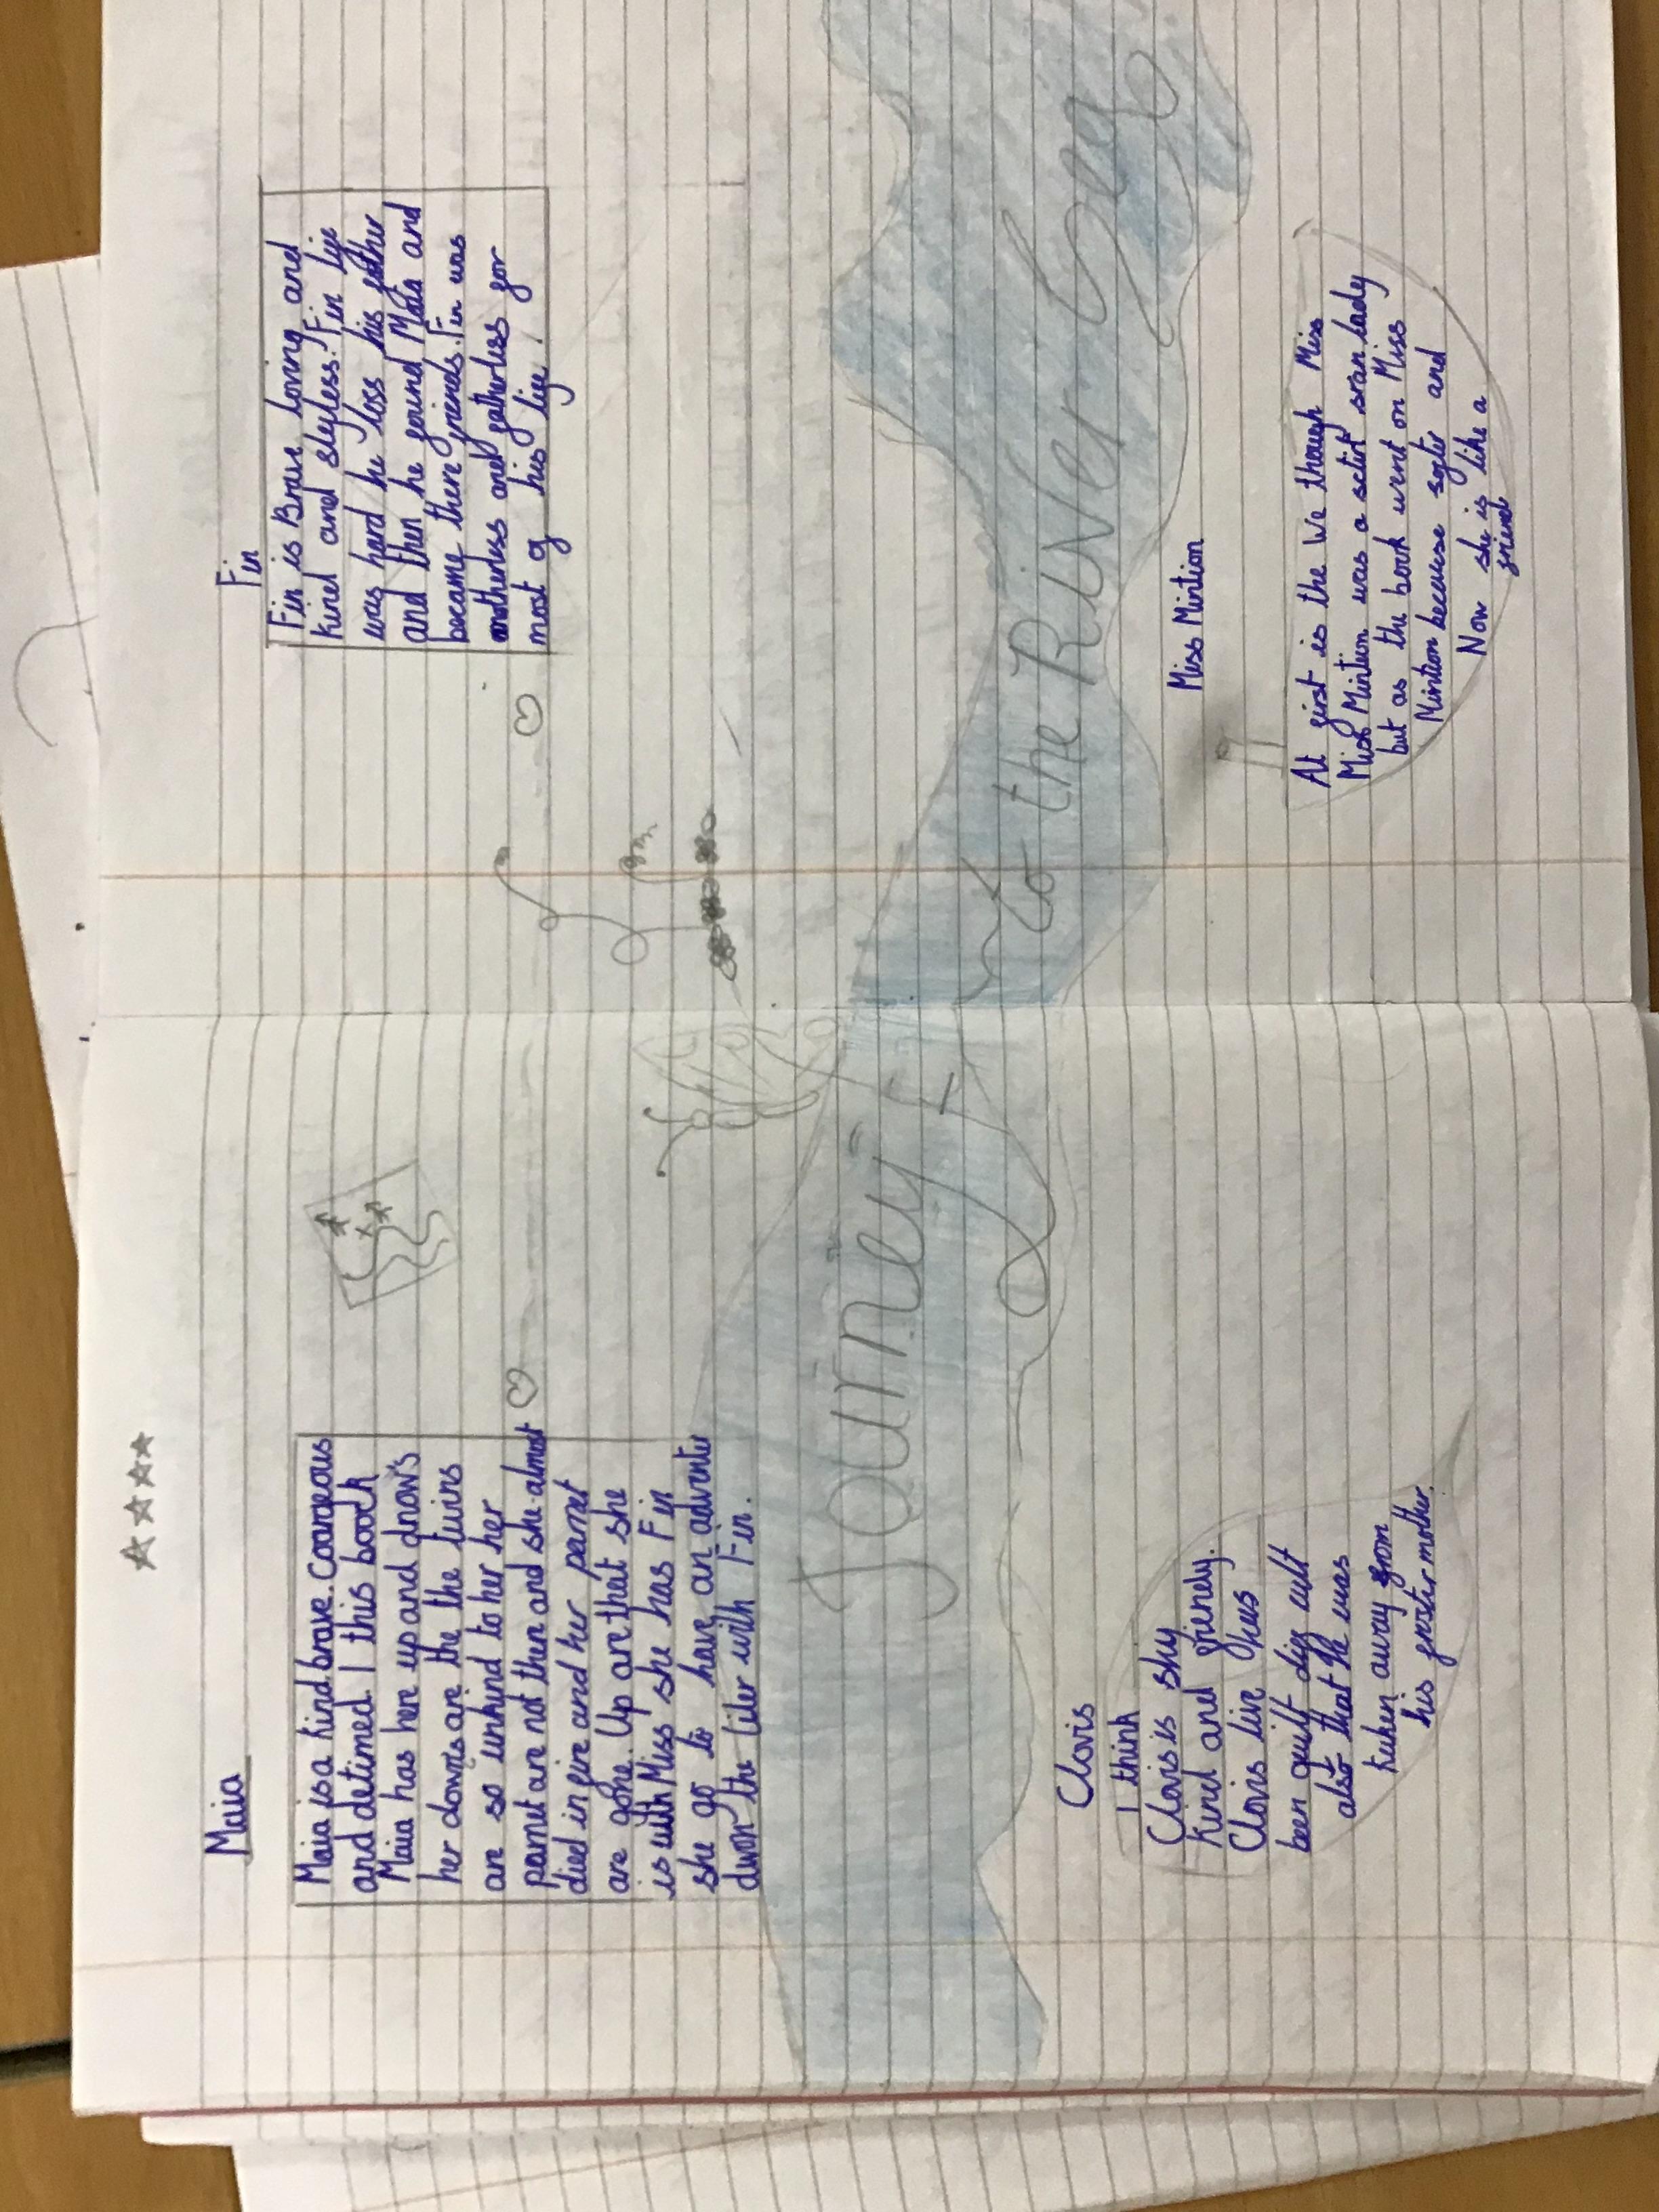 Maia
Maia is a kind brave. Coareous
and detimed. I this booch
Maia has here up and dnow's
her downs are the the twins
are so unkind to her her
parnet are not then and she almost
died in fire and her parnet
are gone. Up are that she
is with Miss she has Fin
she go to have an adventer
dwon the river with Fin.
Fin
Fin is Brave loving and
kind and styless. Fin life
was hard he loss his father
and then he found Maia and
became there friends. Fin was
motherless and fatherless for
most of his life.
Journey to the River Sea
Clovis
I think
Clovis is shy
kind and frienely.
Clovis live hus
been quilt dif cult
also that he was
taken away from
his foster mother.
Miss Mintion
At first is the we though Miss
Miss Mintion was a scirt sran lady
but as the book went on Miss
Mintion becuse softer and
Now she is like a
friend